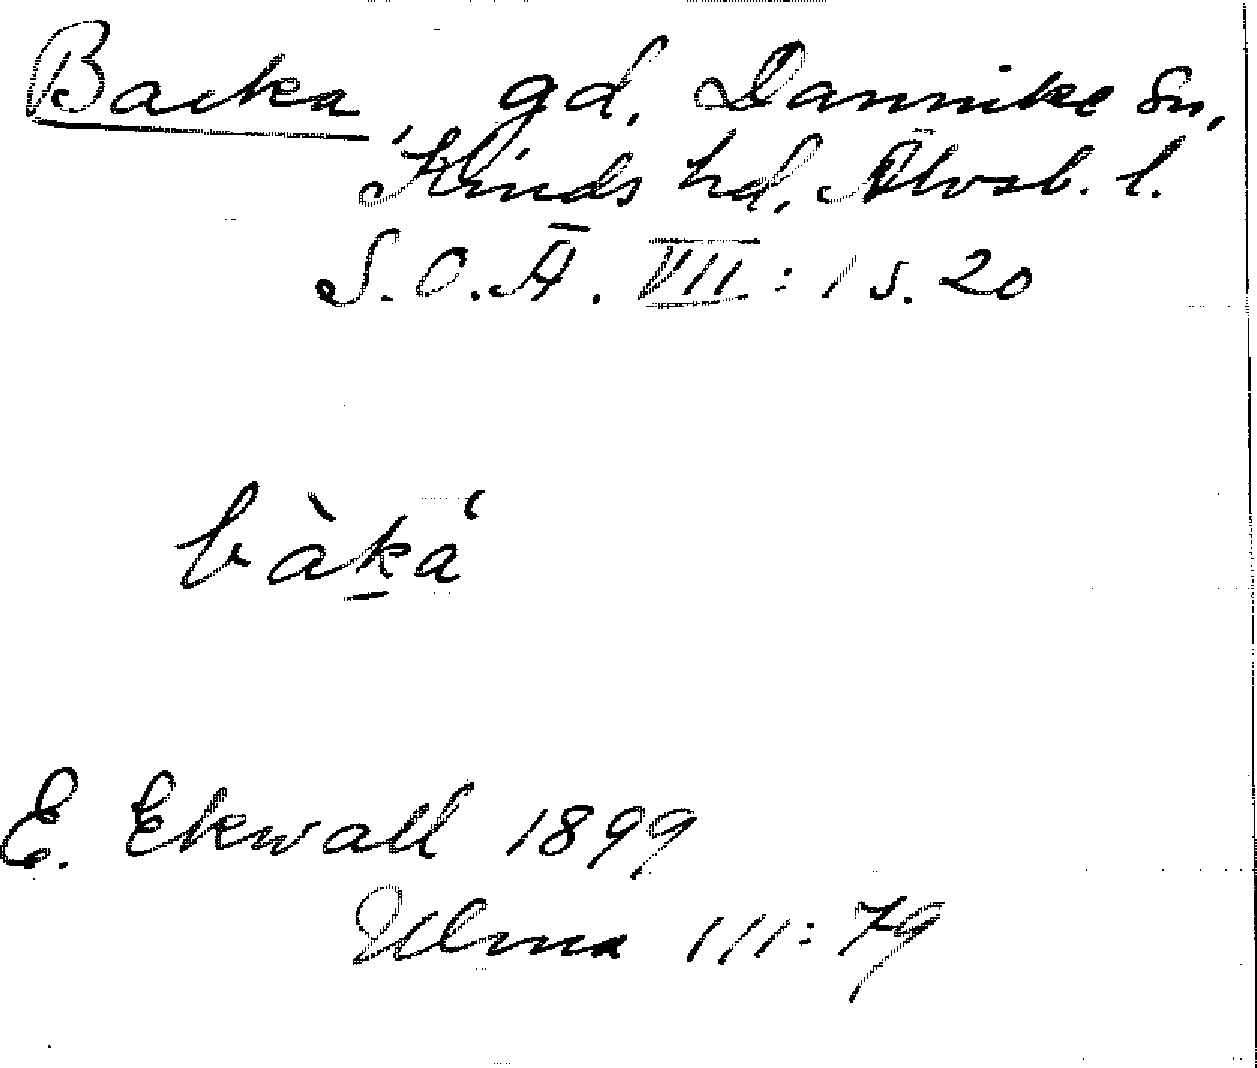 Backa, gd, Dannike sn,
Kinds hd, Älvsb. l.
S.O.Ä. VII: 1 s. 20
bàka
E. Ekwall 1899
Ulma 111:79